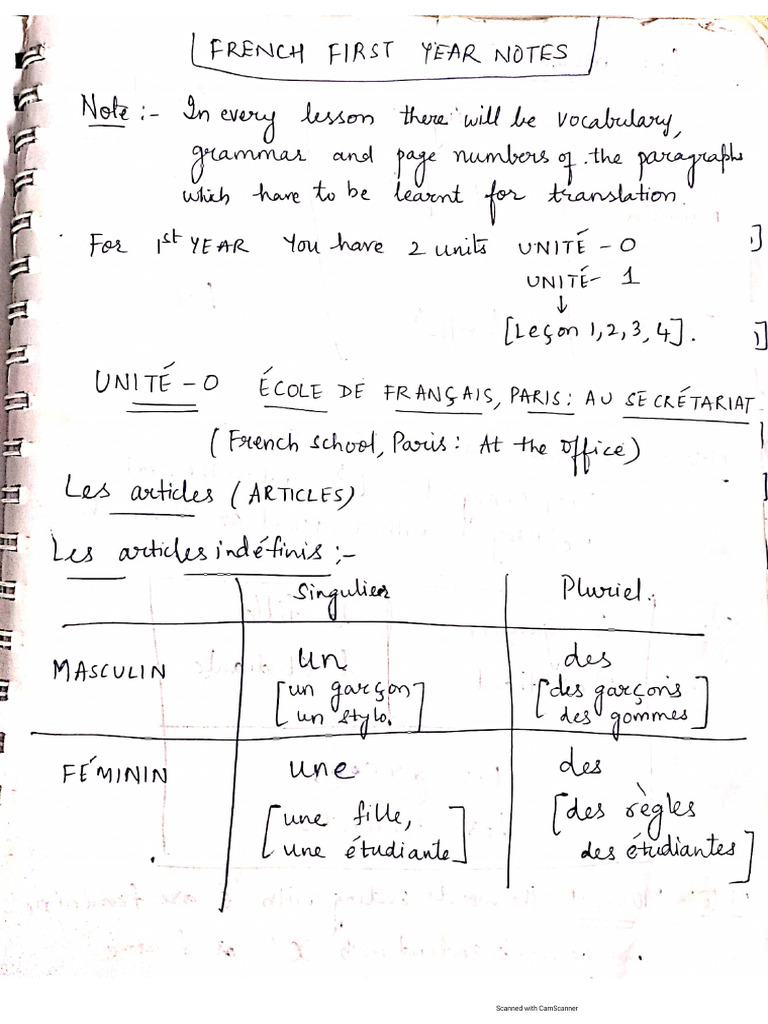 FRENCH FIRST YEAR NOTES
Note :- In every lesson there will be vocabulary,
grammar and page numbers of the paragraphs
which have to be learnt for translation.
For 1st YEAR You have 2 units UNITÉ - 0
UNITÉ - 1
↓
[Leçon 1, 2, 3, 4].
UNITÉ - 0 ÉCOLE DE FRANÇAIS, PARIS : AU SECRÉTARIAT
(French school, Paris : At the office)
Les articles (ARTICLES)
Les articles indéfinis :-
Singulier Pluriel.
MASCULIN un des
[un garçon [des garçons
un stylo.] des gommes]
FÉMININ une des
[une fille, [des règles
une étudiante] des étudiantes]
Scanned with CamScanner